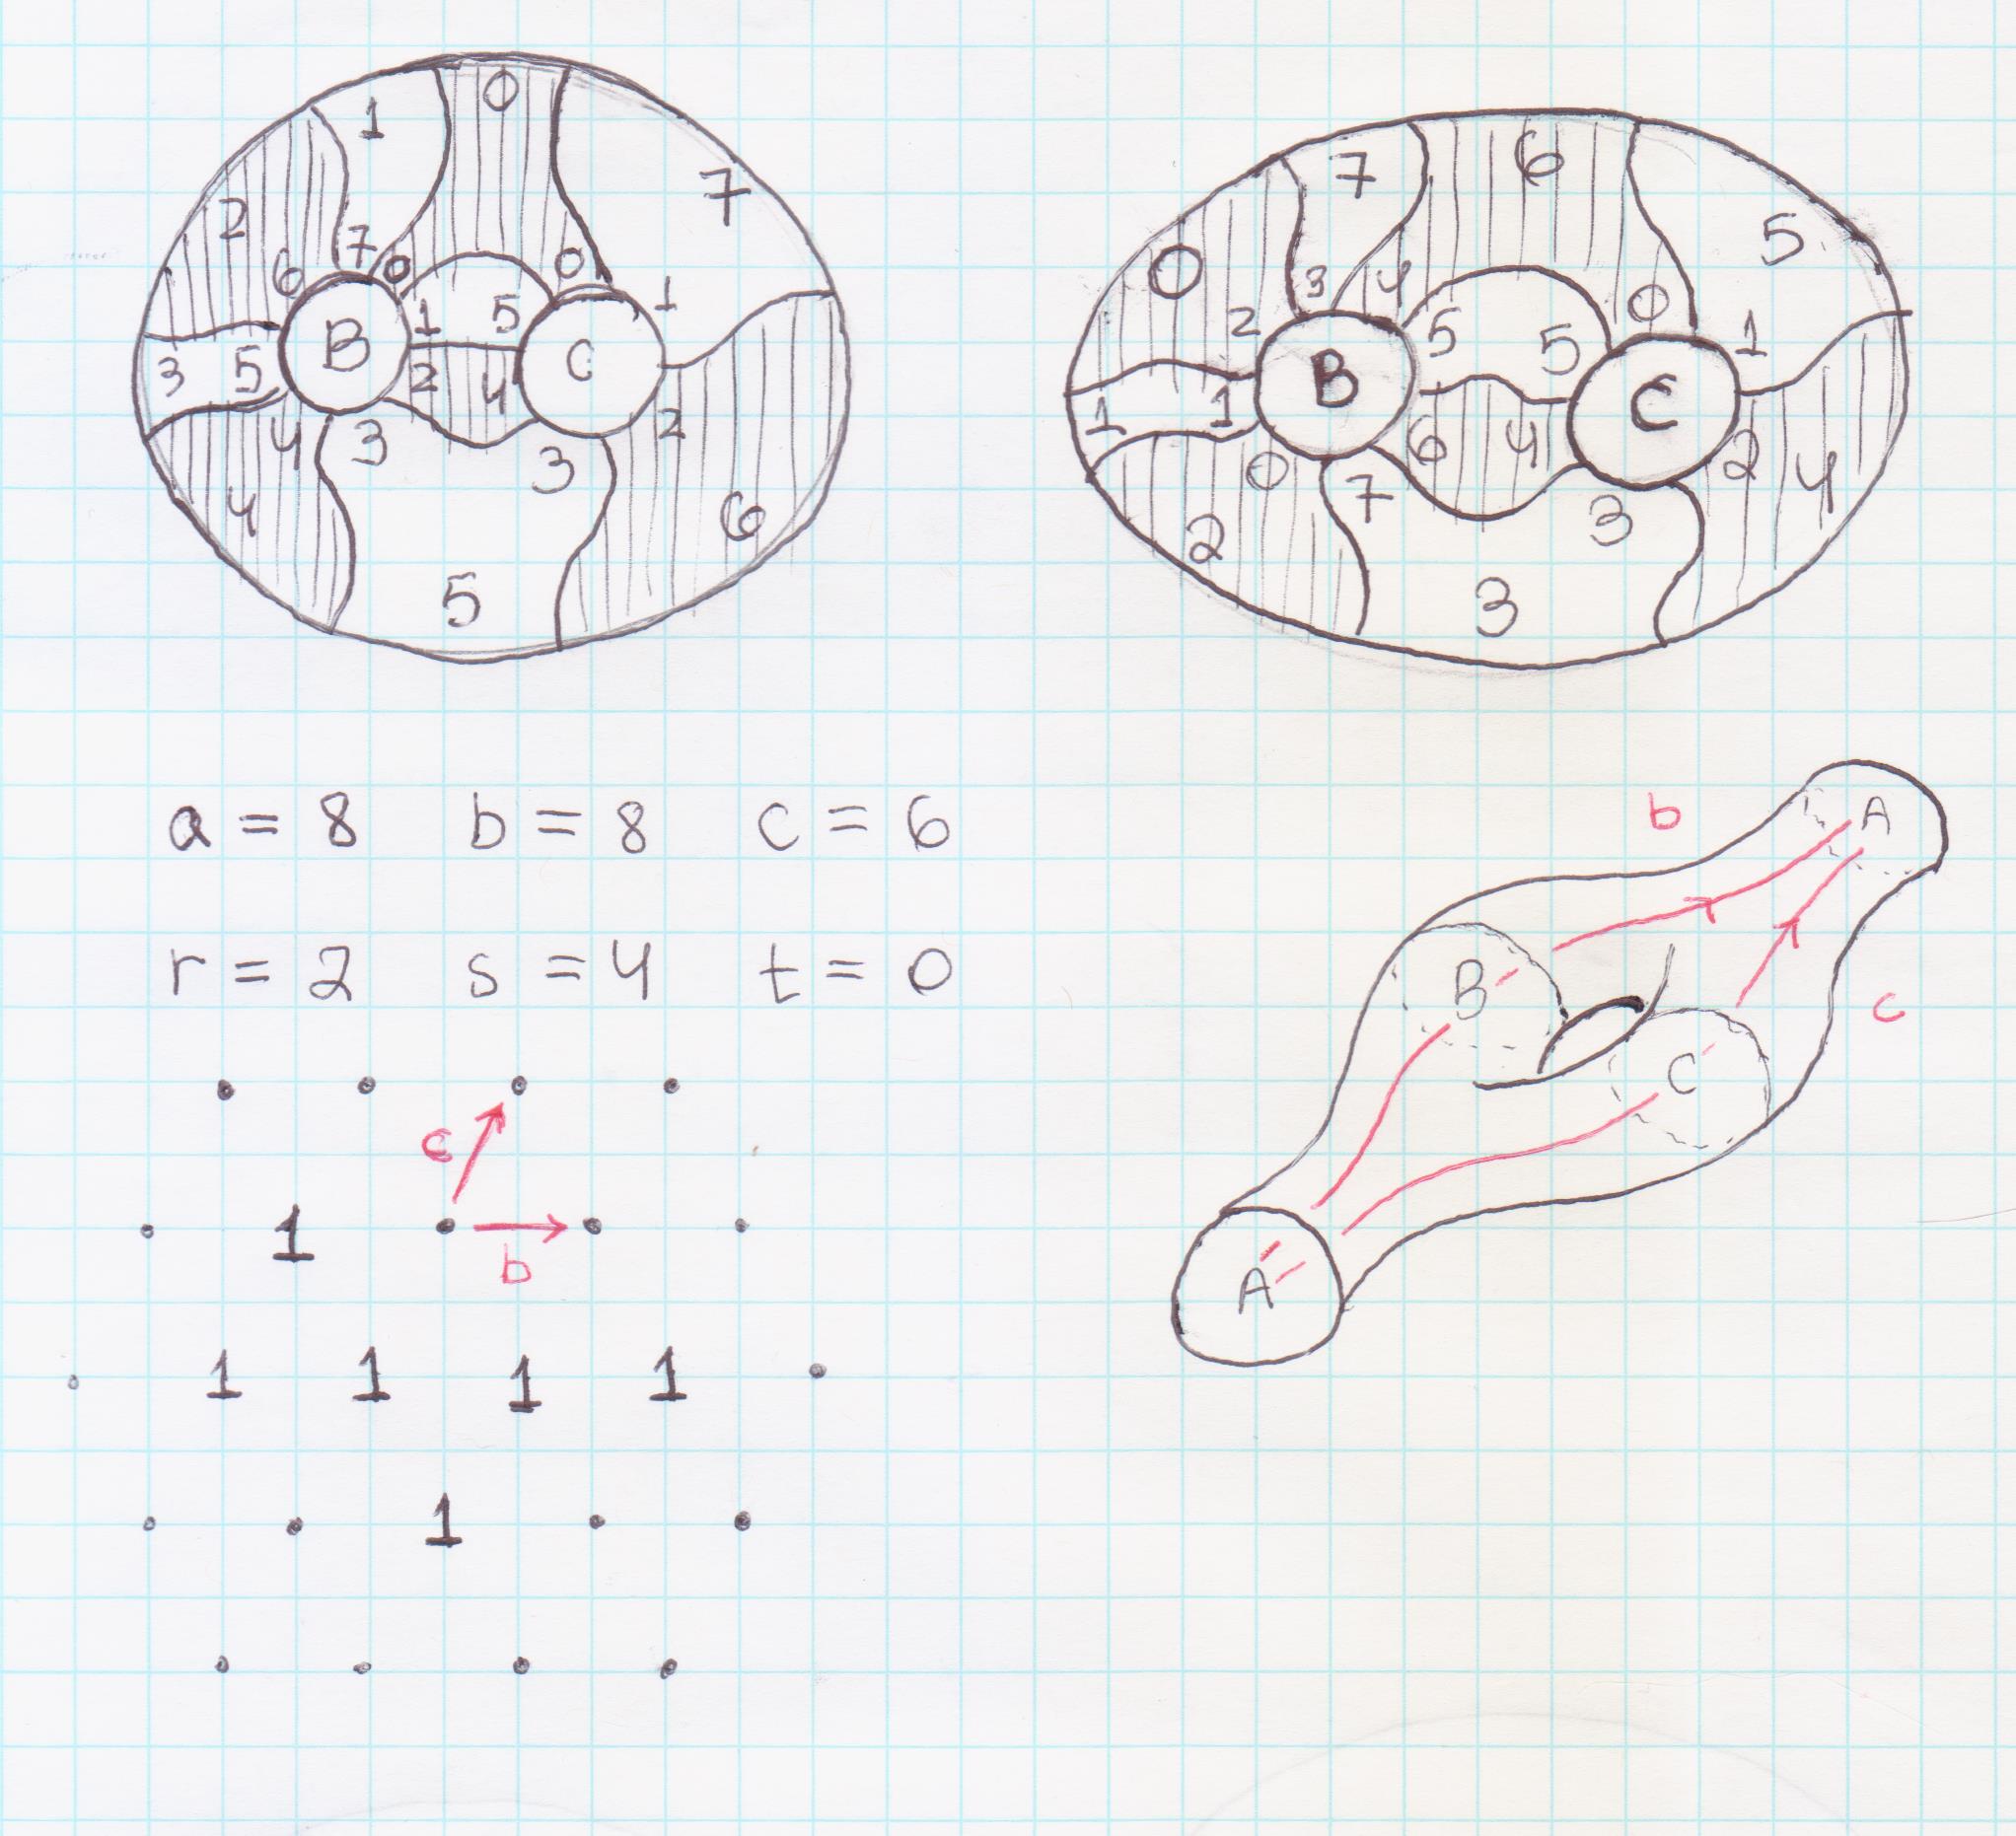 0
1
7
2
6
7
0
0
1
1
5
B
C
3
5
2
4
4
3
3
2
4
6
5
6
7
5
0
3
4
0
2
5
5
1
B
C
1
1
6
4
2
4
0
7
3
2
3
a = 8 b = 8 c = 6
r = 2 s = 4 t = 0
c
b
1
1 1 1 1
1
b
A
B
c
C
A